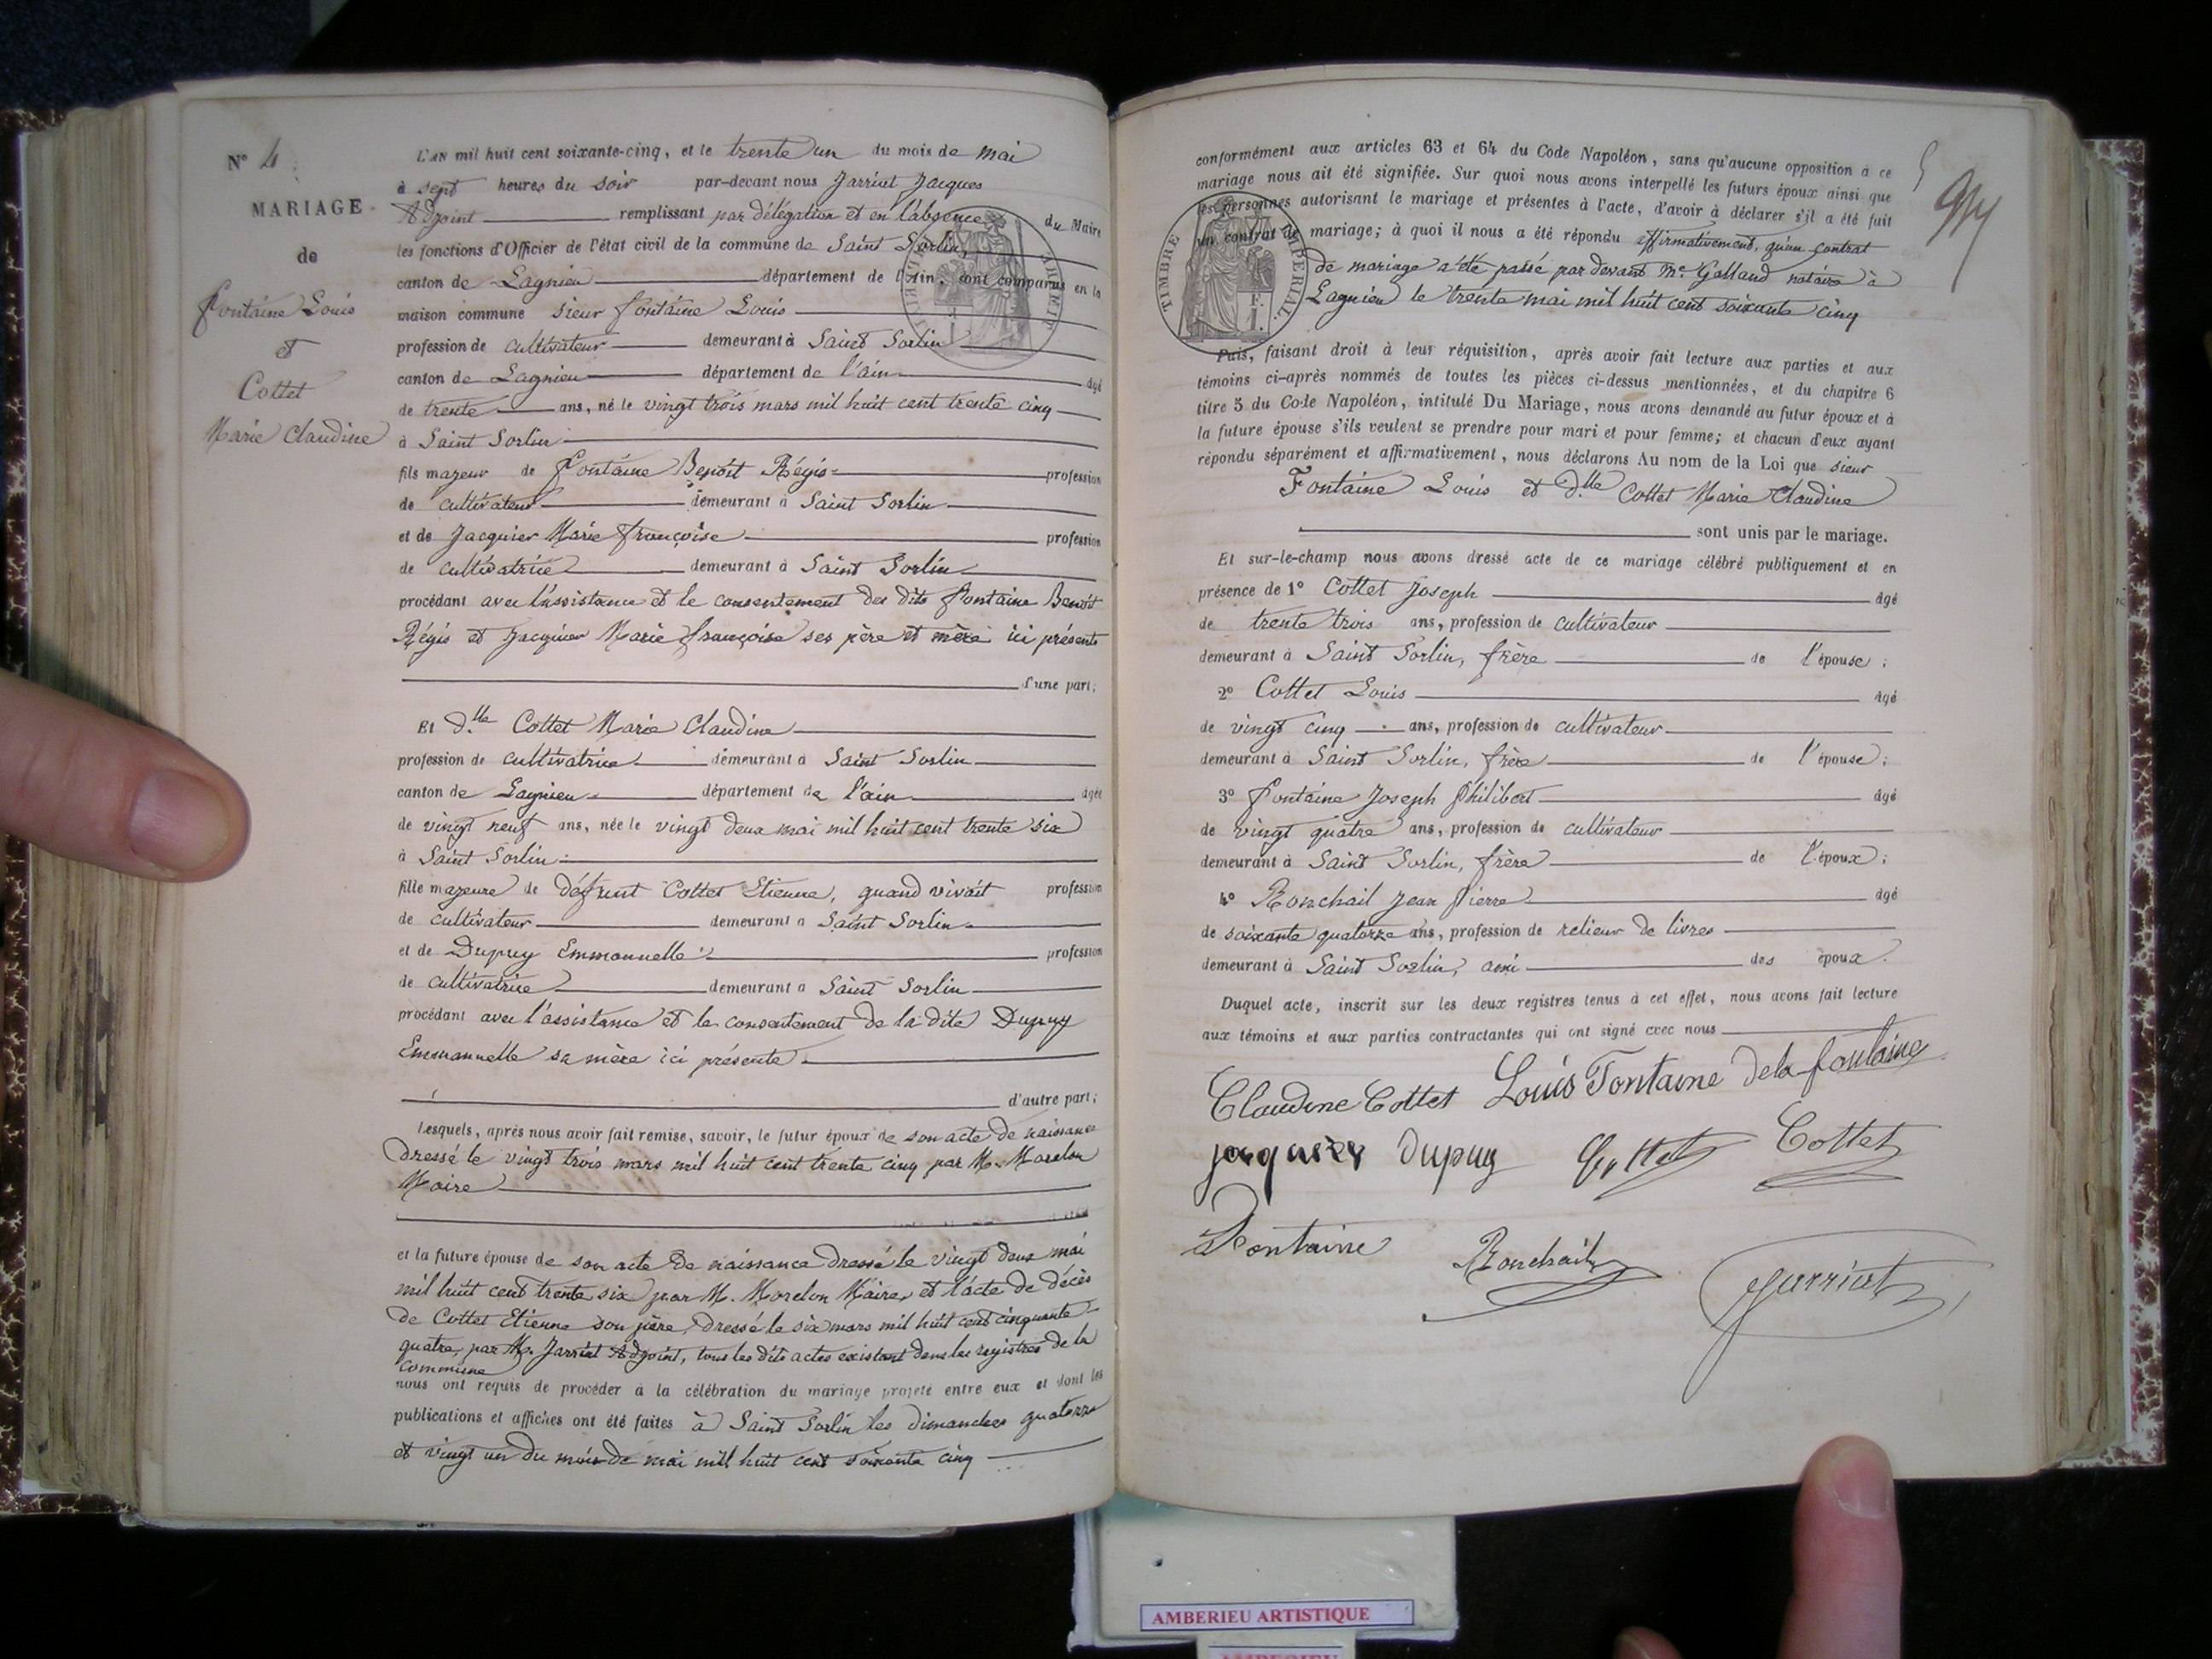 N° 4
MARIAGE
de
Fontaine Louis
et
Cottet
Marie Claudine
L'AN mil huit cent soixante-cinq, et le trente un du mois de mai
à sept heures du soir par-devant nous Jarriat Jacques
Adjoint remplissant par délégation et en l'absence du Maire
les fonctions d'Officier de l'état civil de la commune de Saint Sorlin,
canton de Lagnieu département de l'Ain, sont comparus en la
maison commune sieur Fontaine Louis
profession de cultivateur demeurant à Saint Sorlin
canton de Lagnieu département de l'ain âgé
de trente ans, né le vingt trois mars mil huit cent trente cinq
à Saint Sorlin
fils majeur de Fontaine Benoît Régis profession
de cultivateur demeurant à Saint Sorlin
et de Jacquier Marie françoise profession
de cultivatrice demeurant à Saint Sorlin
procédant avec l'assistance et le consentement des dits Fontaine Benoît
Régis et Jacquier Marie françoise ses père et mère ici présents
d'une part;
Et d.lle Cottet Marie Claudine
profession de cultivatrice demeurant à Saint Sorlin
canton de Lagnieu département de l'ain âgée
de vingt neuf ans, née le vingt deux mai mil huit cent trente six
à Saint Sorlin
fille majeure de défunt Cottet Etienne, quand vivait profession
de cultivateur demeurant à Saint Sorlin
et de Dupuy Emmanuelle profession
de cultivatrice demeurant à Saint Sorlin
procédant avec l'assistance et le consentement de la dite Dupuy
Emmanuelle sa mère ici présente
d'autre part;
Lesquels, après nous avoir fait remise, savoir, le futur époux de son acte de naissance
dressé le vingt trois mars mil huit cent trente cinq par M. Morelon
Maire
et la future épouse de son acte de naissance dressé le vingt deux mai
mil huit cent trente six par M. Morelon Maire, et l'acte de décès
de Cottet Etienne son père, dressé le six mars mil huit cent cinquante
quatre, par M. Jarriat Adjoint, tous les dits actes existant dans les registres de la
commune
nous ont requis de procéder à la célébration du mariage projeté entre eux et dont les
publications et affiches ont été faites à Saint Sorlin les dimanches quatorze
et vingt un du mois de mai mil huit cent soixante cinq
conformément aux articles 63 et 64 du Code Napoléon, sans qu'aucune opposition à ce
mariage nous ait été signifiée. Sur quoi nous avons interpellé les futurs époux ainsi que
les personnes autorisant le mariage et présentes à l'acte, d'avoir à déclarer s'il a été fait
un contrat de mariage; à quoi il nous a été répondu affirmativement, qu'un contrat
de mariage a été passé par devant Me. Galland notaire à
Lagnieu le trente mai mil huit cent soixante cinq
TIMBRE IMPERIAL.
Puis, faisant droit à leur réquisition, après avoir fait lecture aux parties et aux
témoins ci-après nommés de toutes les pièces ci-dessus mentionnées, et du chapitre 6
titre 5 du Code Napoléon, intitulé Du Mariage, nous avons demandé au futur époux et à
la future épouse s'ils veulent se prendre pour mari et pour femme; et chacun d'eux ayant
répondu séparément et affirmativement, nous déclarons Au nom de la Loi que sieur
Fontaine Louis et d.lle Cottet Marie Claudine
sont unis par le mariage.
Et sur-le-champ nous avons dressé acte de ce mariage célébré publiquement et en
présence de 1° Cottet Joseph âgé
de trente trois ans, profession de cultivateur
demeurant à Saint Sorlin, frère de l'épouse;
2° Cottet Louis âgé
de vingt cinq ans, profession de cultivateur
demeurant à Saint Sorlin, frère de l'épouse;
3° Fontaine Joseph Philibert âgé
de vingt quatre ans, profession de cultivateur
demeurant à Saint Sorlin, frère de l'époux;
4° Ronchail Jean Pierre âgé
de soixante quatorze ans, profession de relieur de livres
demeurant à Saint Sorlin, ami des époux.
Duquel acte, inscrit sur les deux registres tenus à cet effet, nous avons fait lecture
aux témoins et aux parties contractantes qui ont signé avec nous
Claudine Cottet Louis Fontaine de la fontaine
jaquier Dupuy Cottet Cottet
Fontaine Ronchail Jarriat
AMBERIEU ARTISTIQUE
AMBERIEU